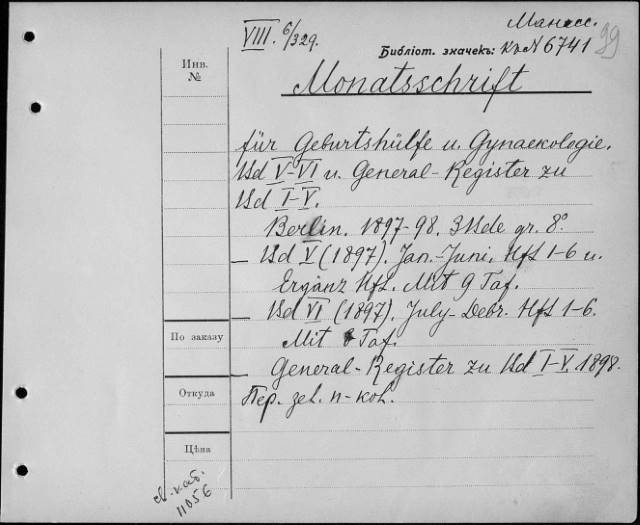 Манасс.
VIII. 6/329.
Библіот. значекъ: Къ № 6741
99
Инв.
№
Monatsschrift
für Geburtshülfe u. Gynaekologie.
Bd V-VI u. General-Register zu
Bd I-V.
Berlin. 1897-98. 3 Bde gr. 8°
Bd V (1897). Jan.-Juni. Hft 1-6 u.
Ergänz Hft. Mit 9 Taf.
Bd VI (1897). July-Debr. Hft 1-6.
По заказу
Mit 8 Taf.
General-Register zu Bd I-V. 1898.
Откуда
Пер. zel. п-кол.
Цѣна
св. кат.
11056